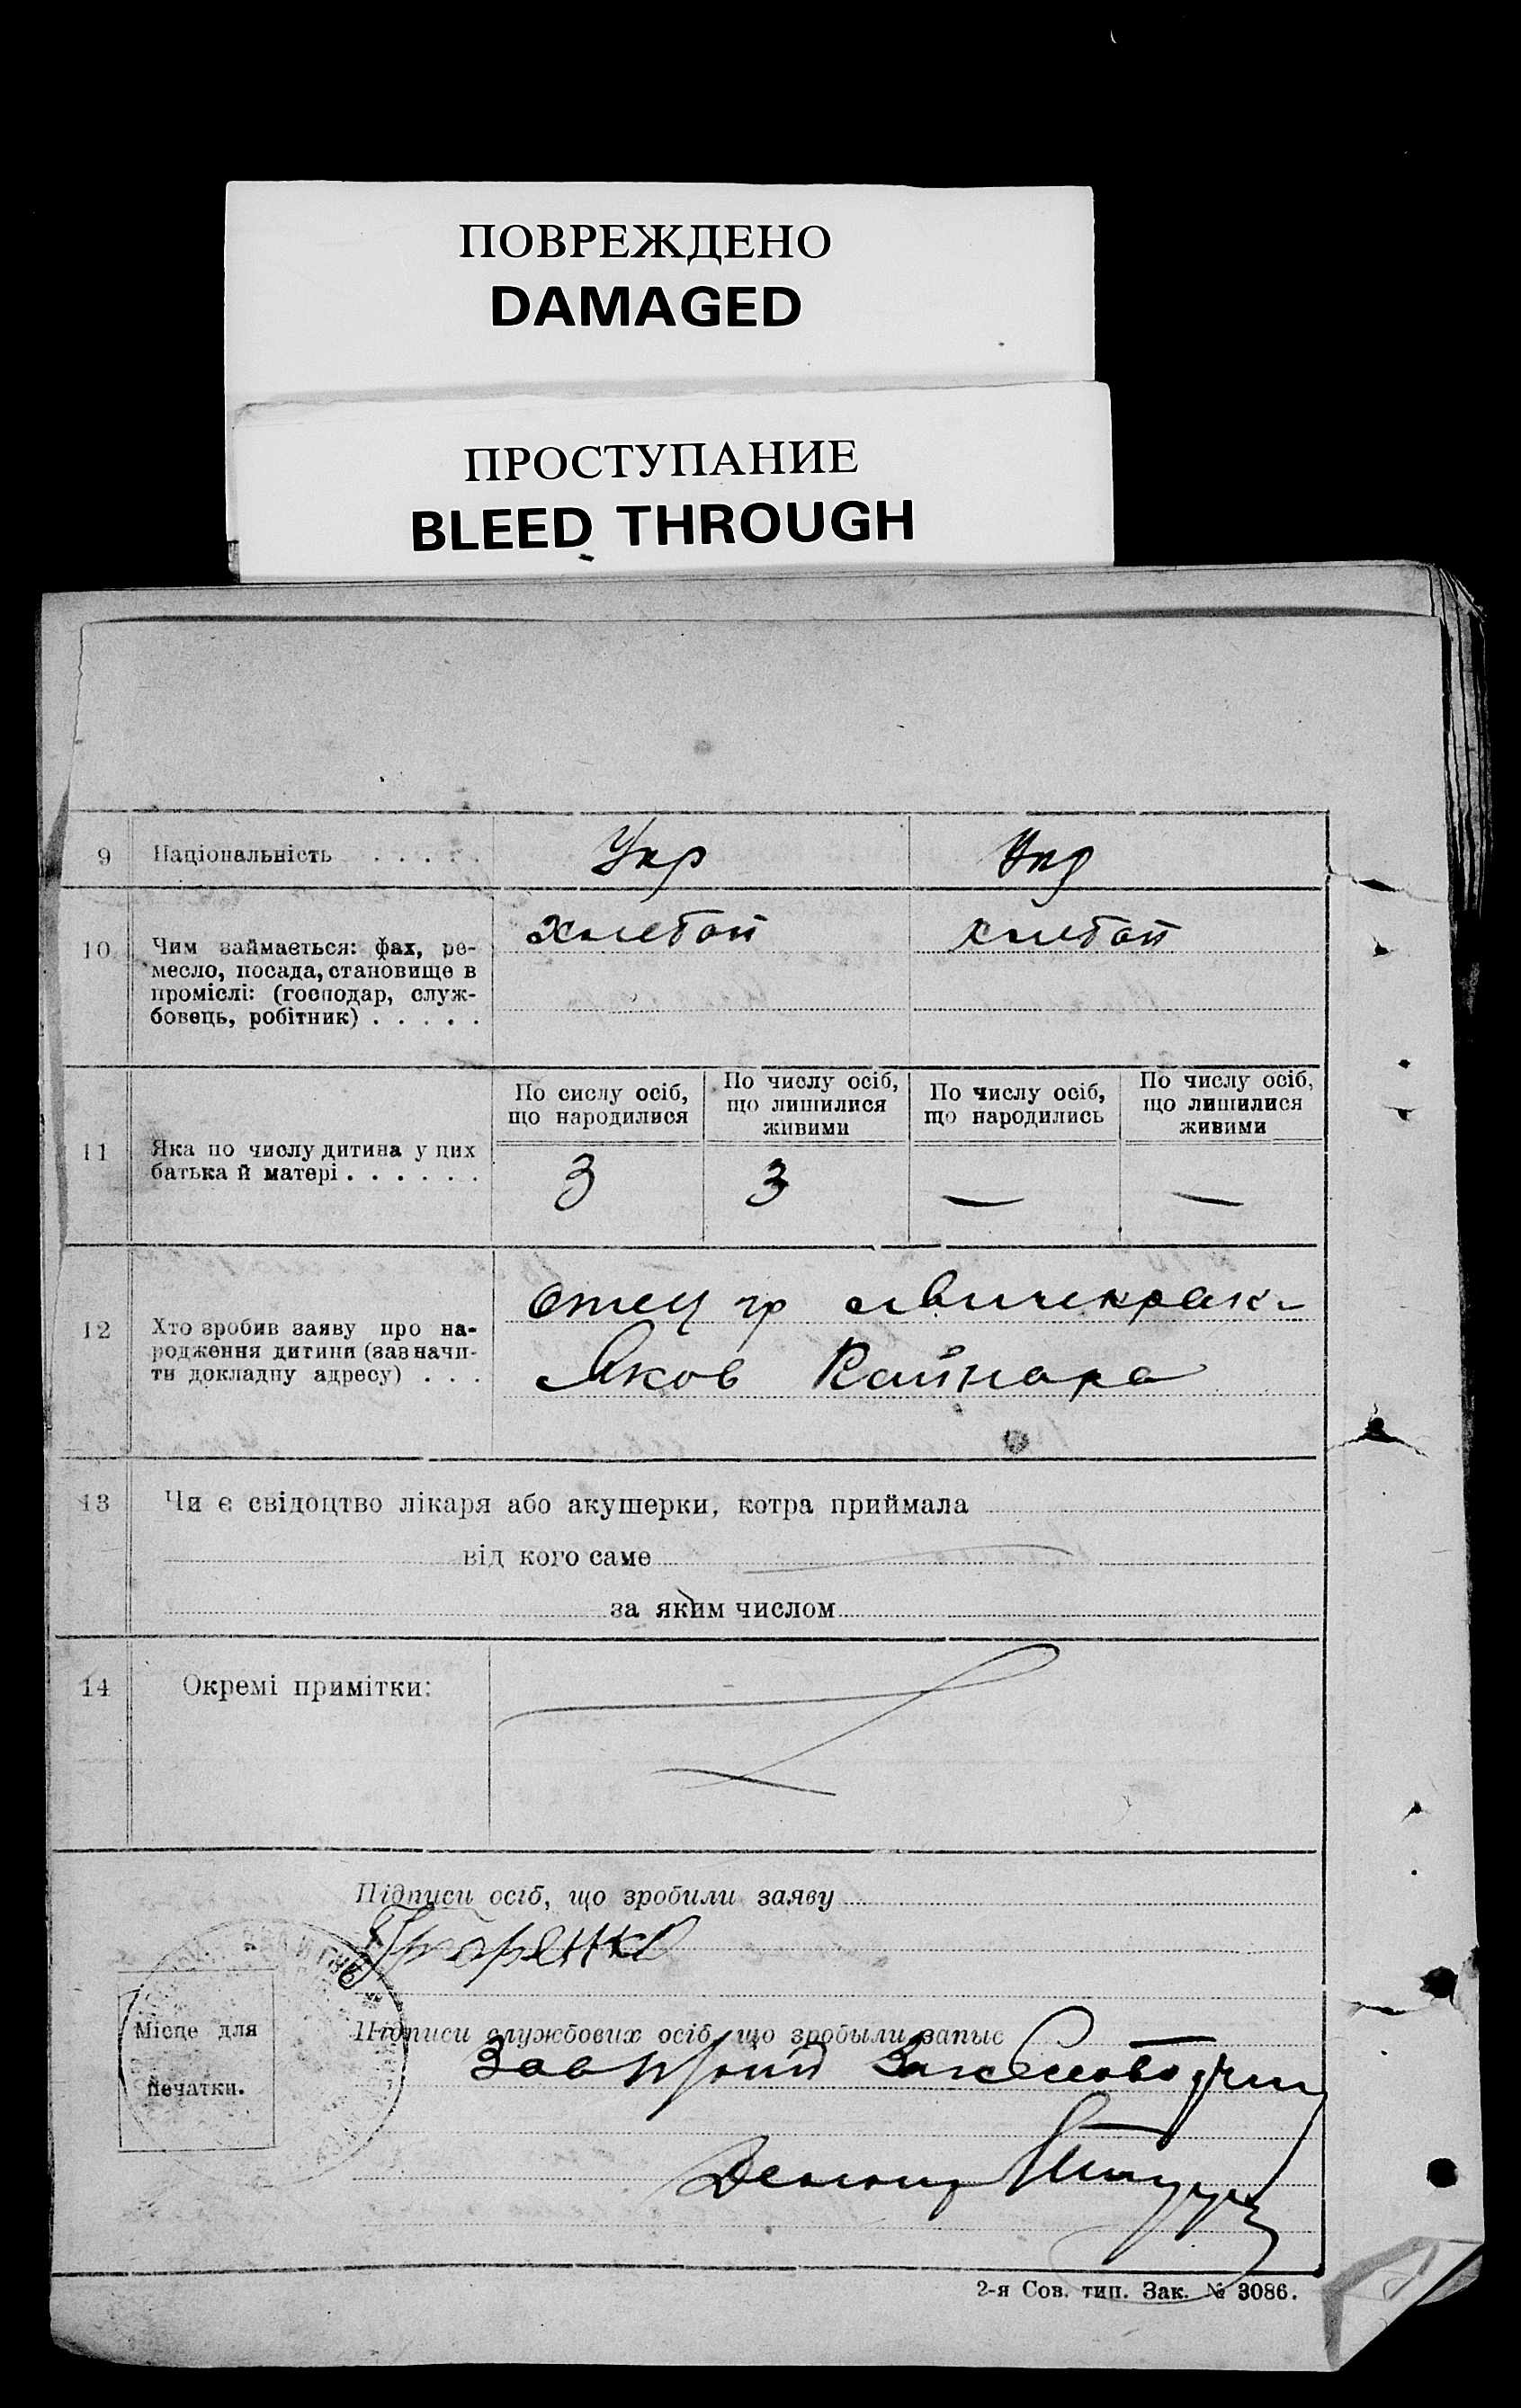 ПОВРЕЖДЕНО
DAMAGED
ПРОСТУПАНИЕ
BLEED THROUGH
9 Національність . . . . . Укр Укр
10 Чим займається: фах, ре-
месло, посада, становище в
проміслі: (господар, служ-
бовець, робітник) . . . . .
хлебоп хлебоп
11 Яка по числу дитина у цих
батька й матері . . . . . .
По сислу осіб,
що народилися
По числу осіб,
що лишилися
живими
По числу осіб,
що народились
По числу осіб,
що лишилися
живими
3 3 — —
12 Хто зробив заяву про на-
родження дитини (зазначи-
ти докладну адресу) . . .
отец гр
Яков
13 Чи є свідоцтво лікаря або акушерки, котра приймала
від кого саме
за яким числом
14 Окремі примітки:
Підписи осіб, що зробили заяву
Місце для
печатки.
Підписи службових осіб, що зробыли запыс
2-я Сов. тип. Зак. № 3086.